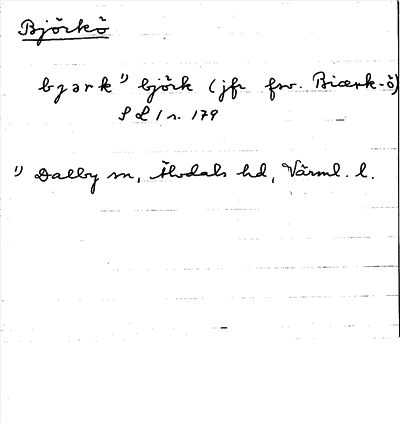 Björkö
bjark ¹⁾ björk (jfr fsv. Biærk-ö)
SL 1 s. 179
¹⁾ Dalby sn, Älvdals hd, Värml. l.